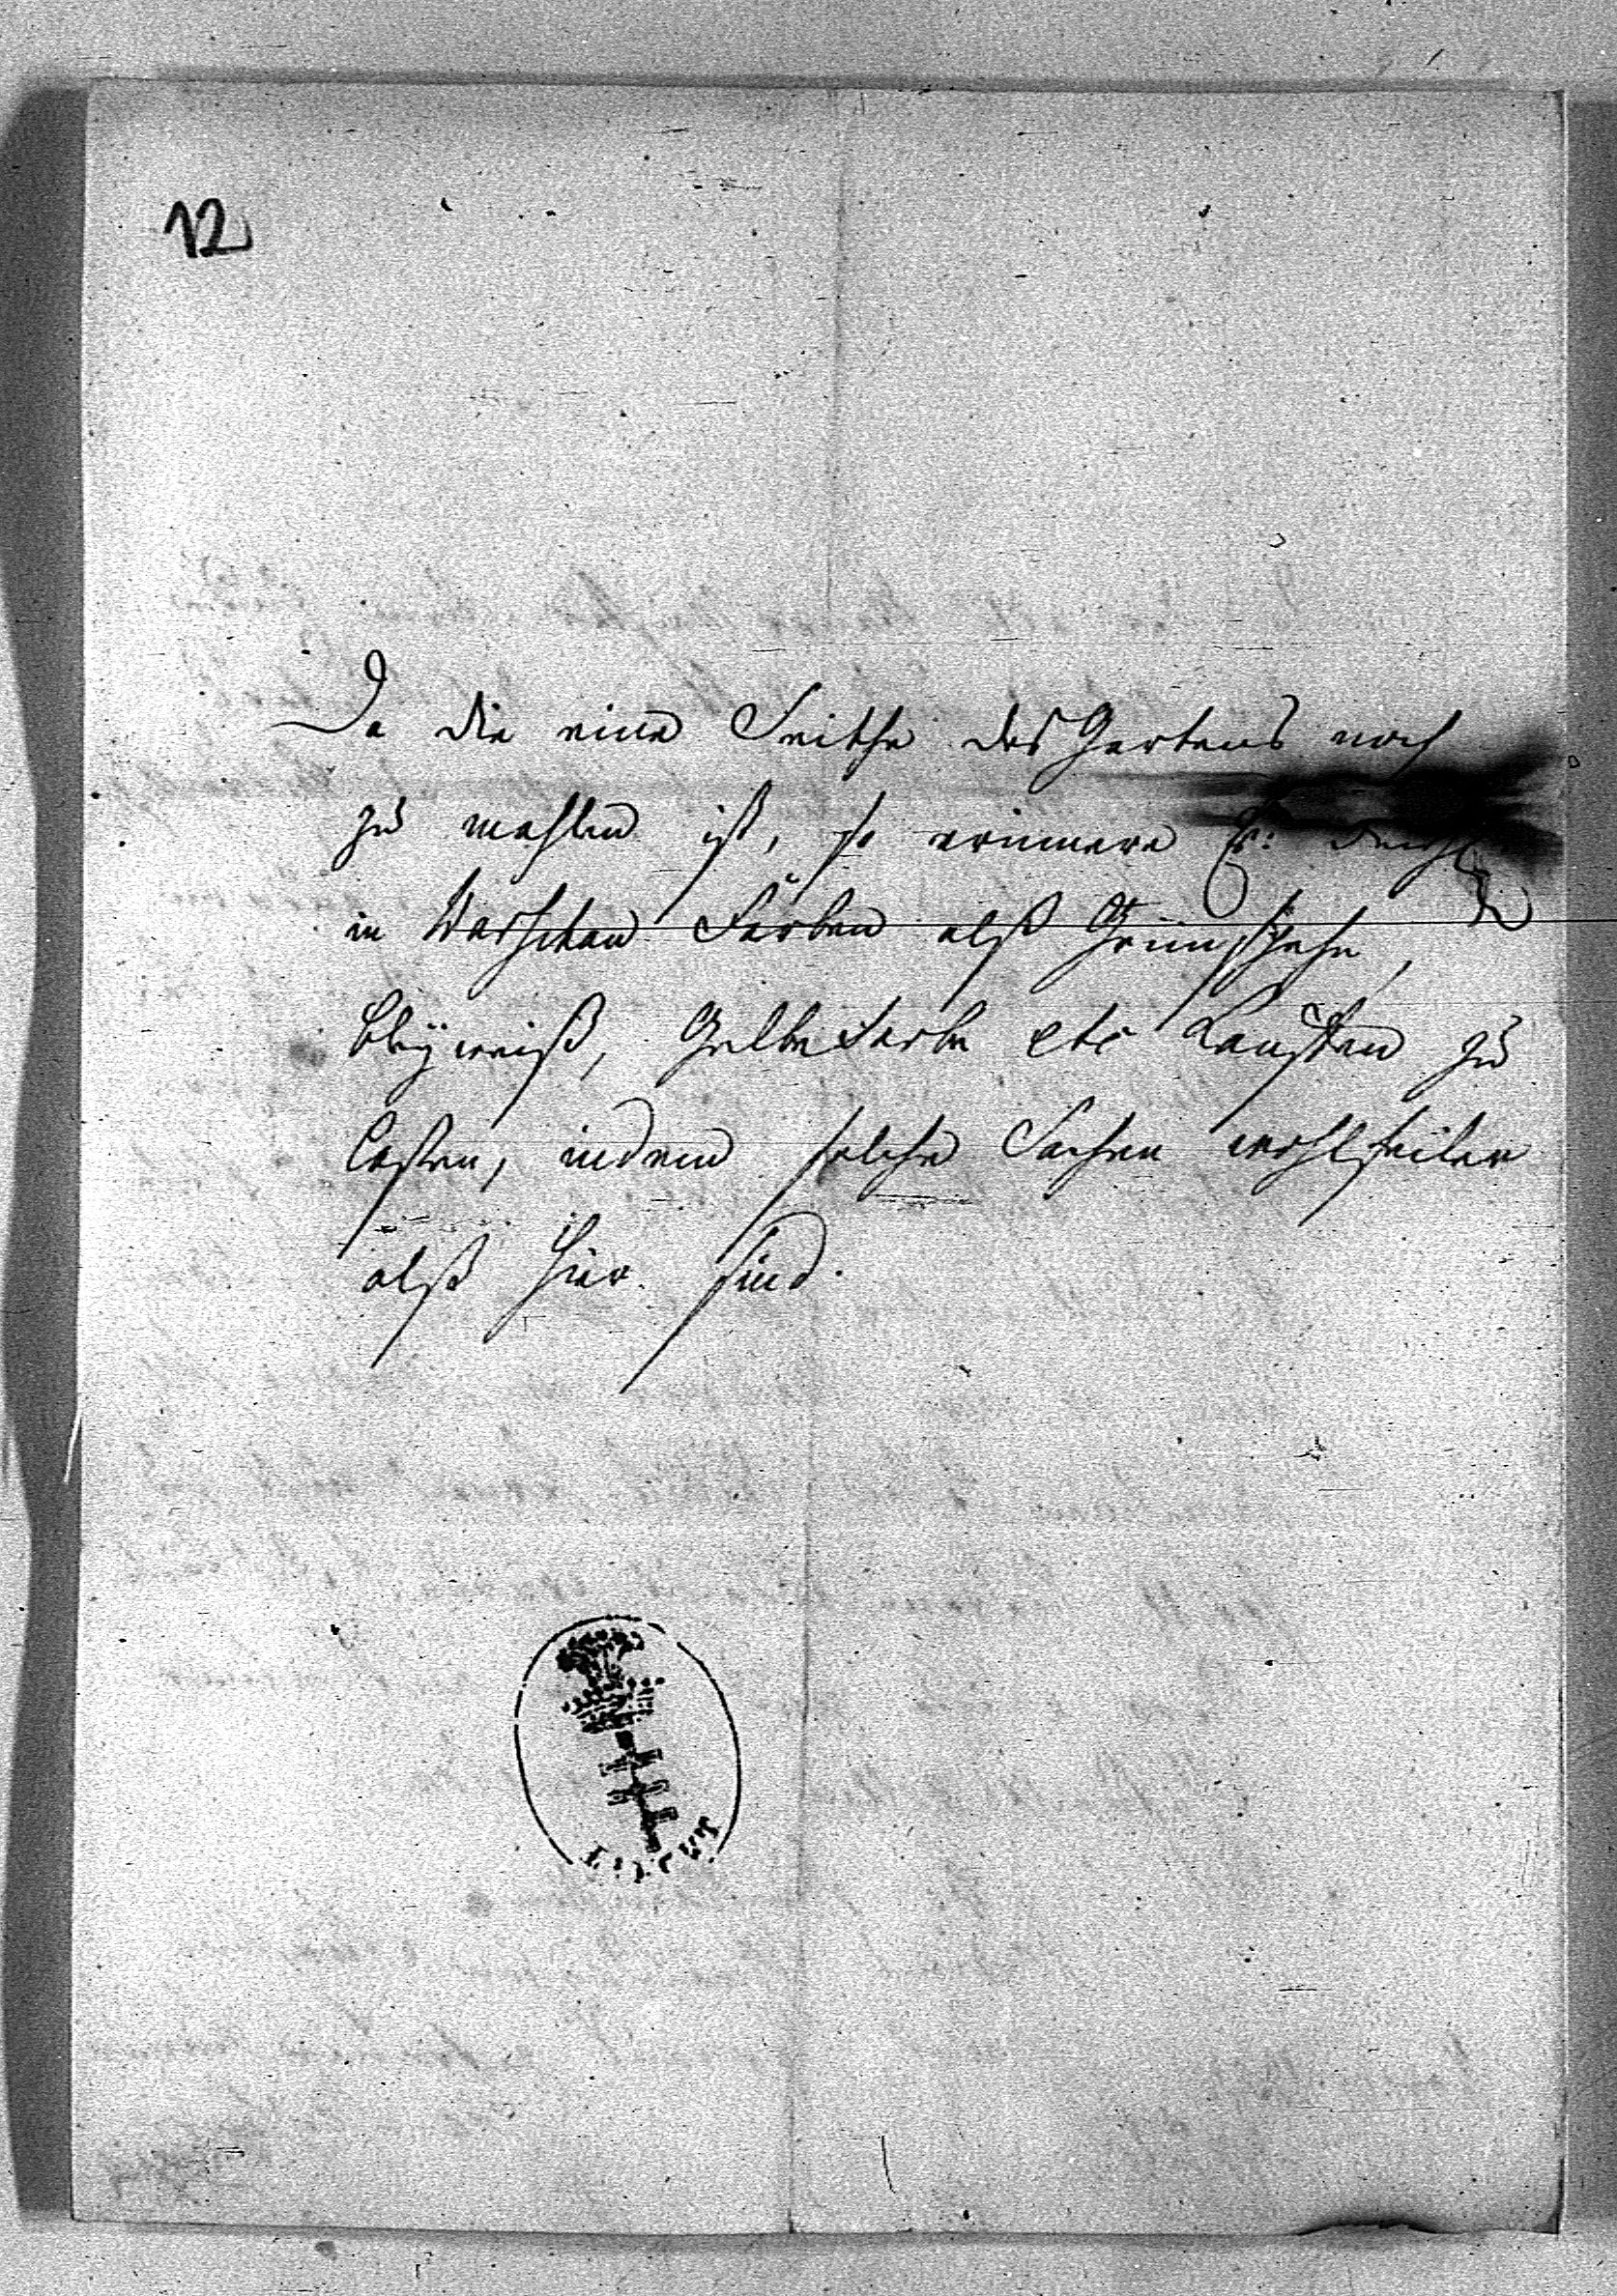 12
Da die eine Seithe des Gartens noch
zu mahlen ist, so erinnere Ew:
in Warschau Farben alß Grünspahn,
bleyweiß, Gelbe Farbe etc Kauffen zu
laßen, indem solche Sachen wohlfeiler
alß hier sind.